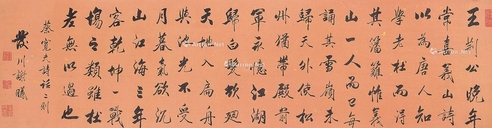 王荆公晚年
常喜義山詩
以為唐人知
學老杜而得
其藩籬惟義
山一人而已每
誦其雪嶺未
歸天外使松
州猶帶殿前
軍永憶江湖
歸白髮欲迴
天地入扁舟
與池光不受
月暮氣欲沉
山江海三年
客乾坤百戰
場之類雖杜
老無以過也
蔡寬夫詩話二則